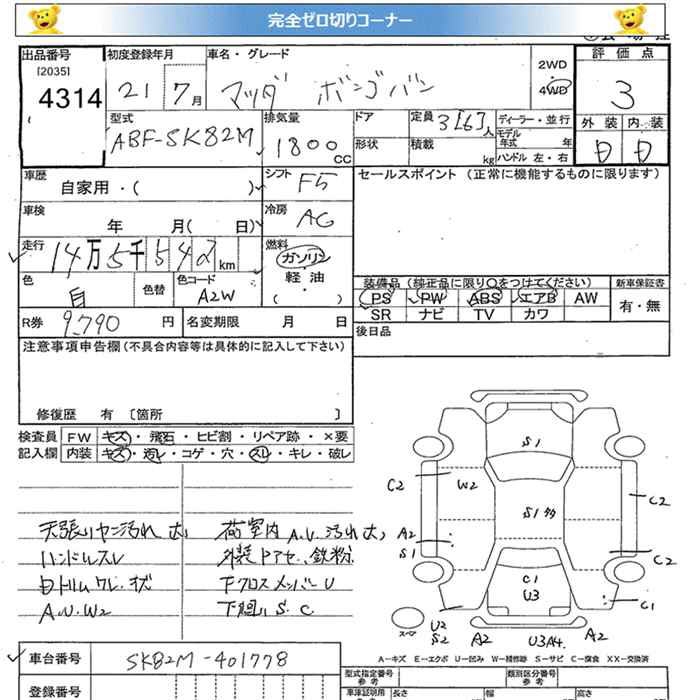 完全ゼロ切りコーナー
出品番号
[2035]
4314
初度登録年月
21 7月
車名・グレード
マツダ ボンゴバン
2WD
4WD
評価点
3
外装 内装
D D
型式
ABF-SK82M
排気量
1800 CC
ドア
形状
定員 3[6]人
積載 kg
ディーラー・並行
モデル年式 年
ハンドル 左・右
車歴
自家用・( )
シフト F5
セールスポイント (正常に機能するものに限ります)
車検
年 月( 日)
冷房 AC
走行
14万5千542km
燃料
ガソリン
軽・油
( )
色
白
色替
色コード
A2W
装備品(純正品に限り○をつけてください)
新車保証書
PS PW ABS エアB AW
有・無
SR ナビ TV カワ
R券 9,790 円
名変期限 月 日
後日品
注意事項申告欄(不具合内容等は具体的に記入して下さい)
修復歴 有 〔箇所 〕
検査員
記入欄
FW キズ・飛石・ヒビ割・リペア跡・×要
内装 キズ・汚レ・コゲ・穴・スレ・キレ・破レ
天張リヤニ汚れ大
ハンドルスレ
内トリムワレ.キズ
A.U.W2
荷室内 A.U.汚れ大
外装ドアセ.鉄粉
下クロスメンバーU
下廻りS.C
S1
C2
W2
C2
S1多
A2
S1
C2
C1
U3
C1
スペア
U2
S2
A2
U3A4.
A2
A-キズ E-エクボ U-凹み W-補修跡 S-サビ C-腐食 XX-交換済
車台番号
SK82M-401778
登録番号
型式指定番号
参考
類別区分番号
参考
長さ
幅
高さ